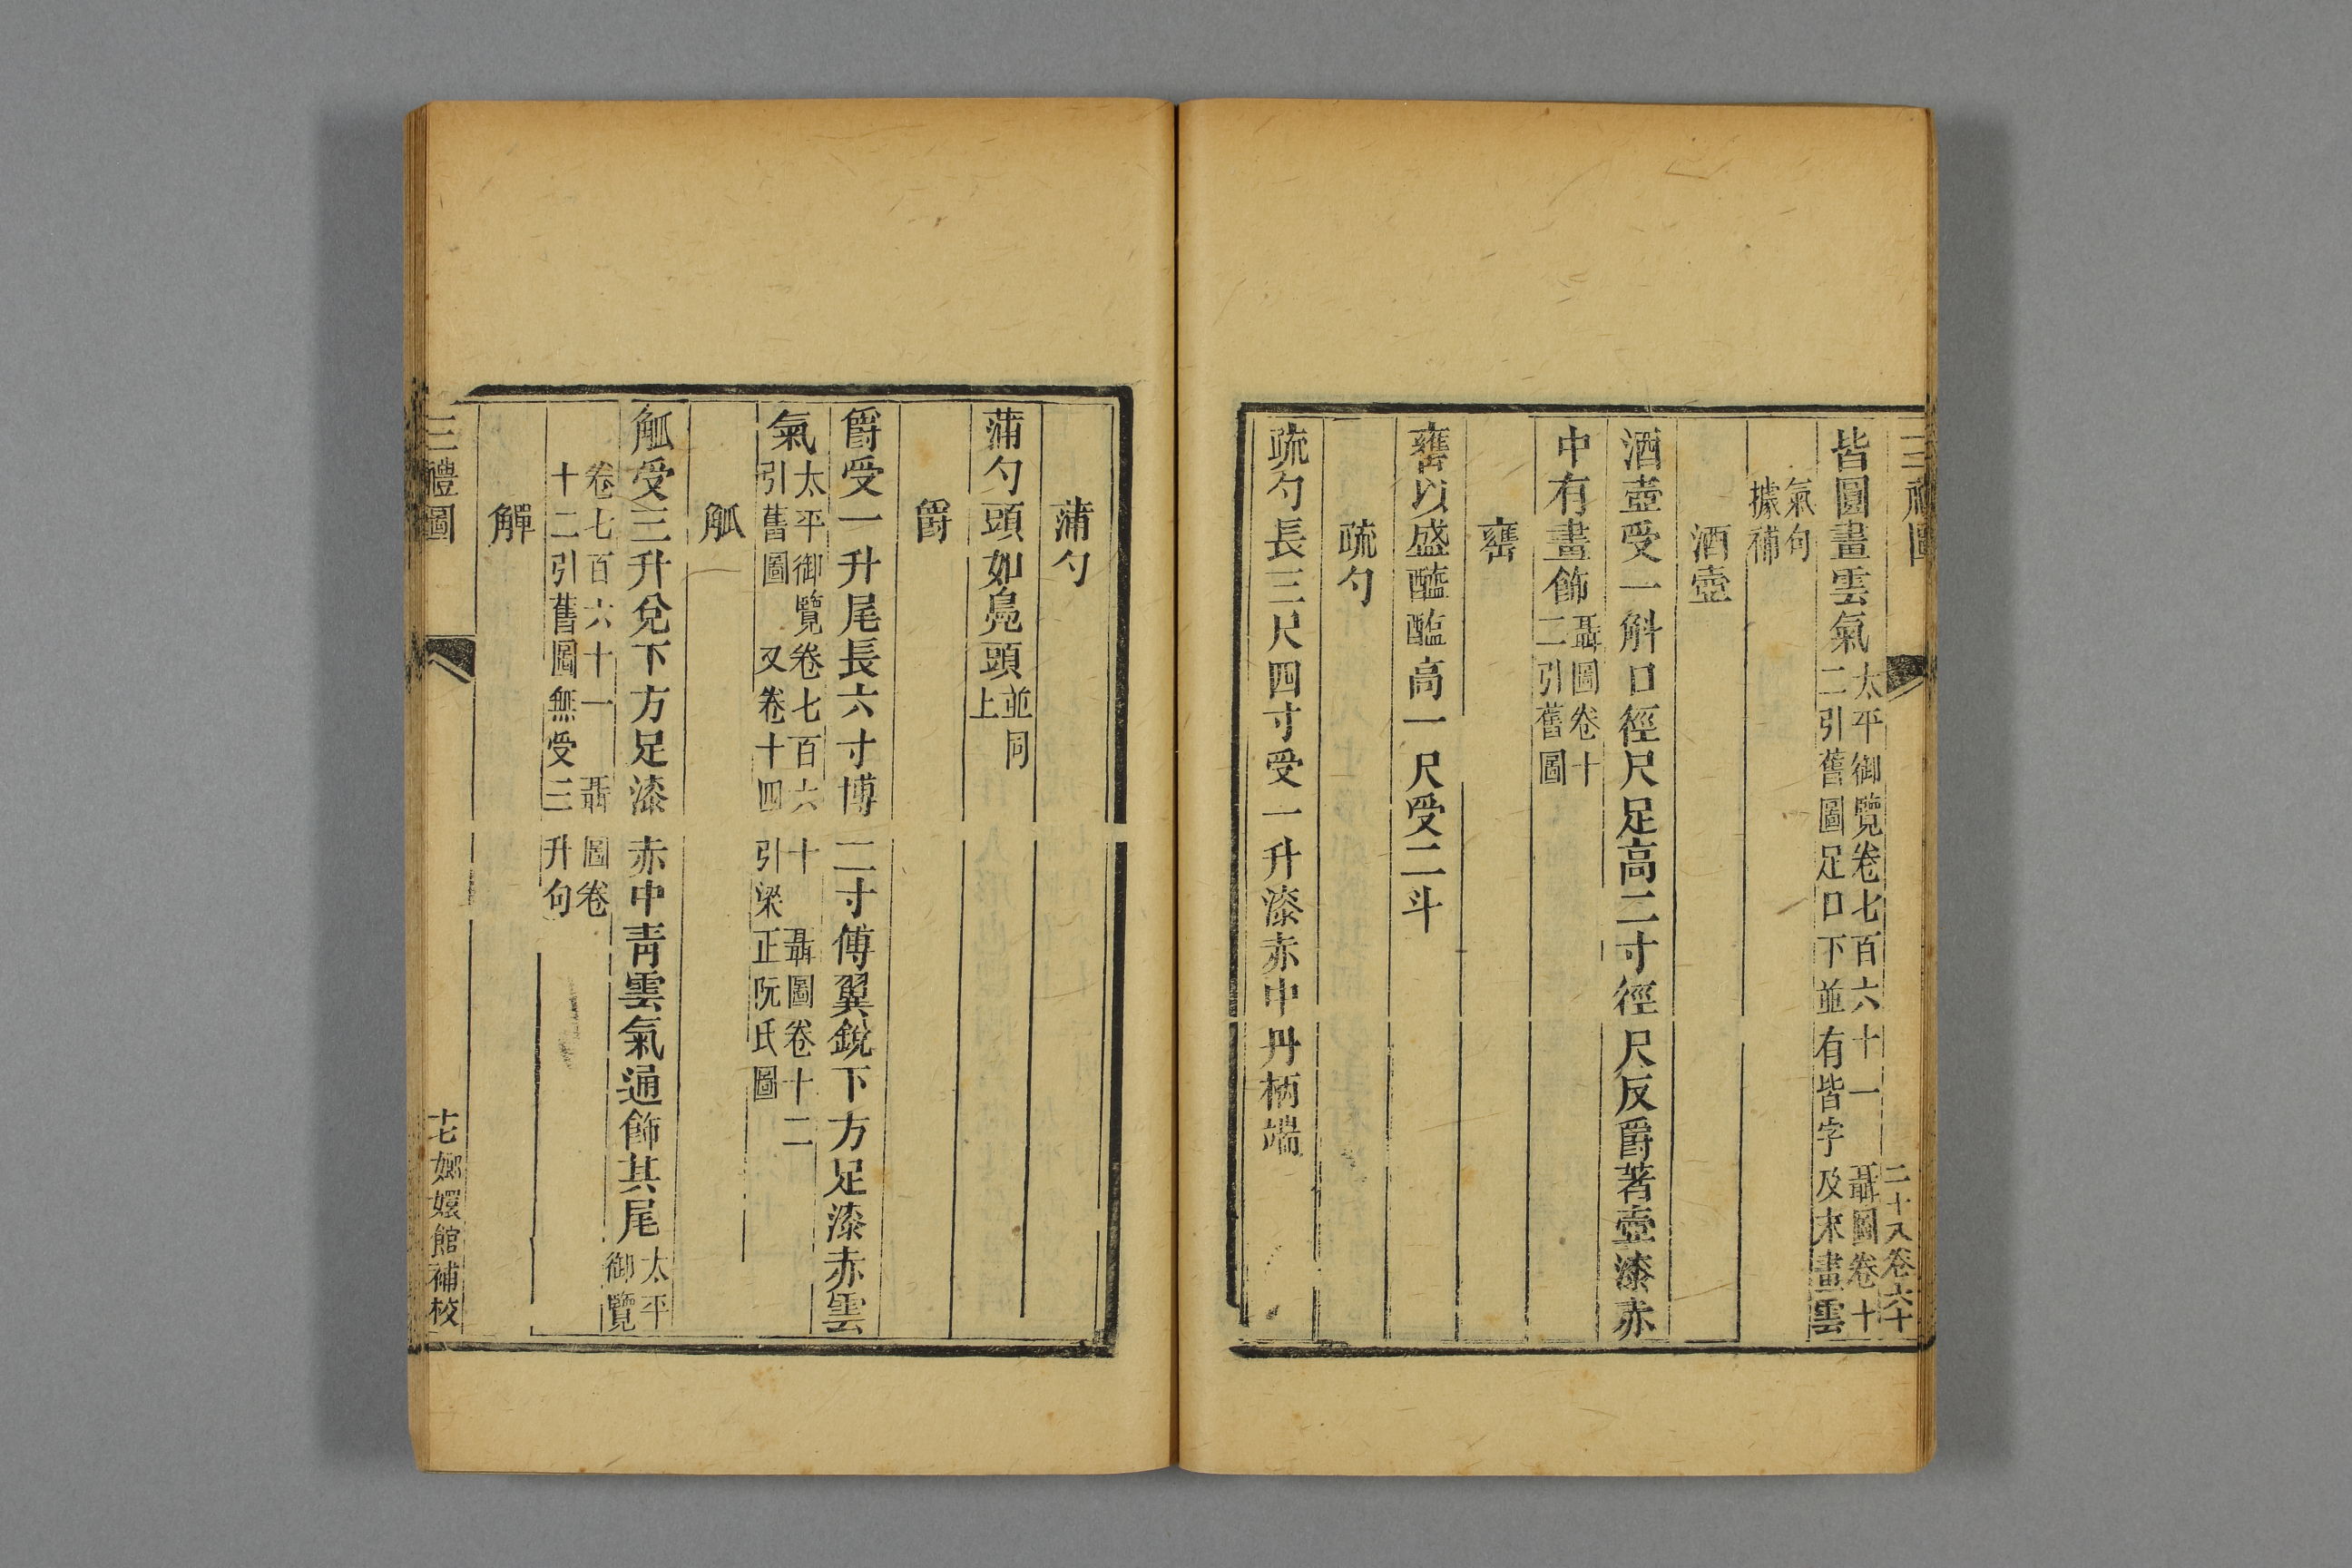 三禮圖 二十八卷 六十
皆圓畫雲氣太平御覽卷七百六十一 聶圖卷十
二引舊圖足口下並有皆字及末畫雲
氣句
據補
酒壺
酒壺受一斛口徑尺足高二寸徑尺反爵著壺漆赤
中有畫飾聶圖卷十
二引舊圖
罋
罋以盛醯醢高一尺受二斗
疏勺
疏勺長三尺四寸受一升漆赤中丹柄端
蒲勺
蒲勺頭如鳧頭並同
上
爵
爵受一升尾長六寸博二寸傅翼銳下方足漆赤雲
氣太平御覽卷七百六十 聶圖卷十二
引舊圖 又卷十四引梁正阮氏圖
觚
觚受三升兌下方足漆赤中靑雲氣通飾其尾太平
御覽
卷七百六十一 聶圖卷
十二引舊圖無受三升句
觶
三禮圖 十七 嫏嬛館補校